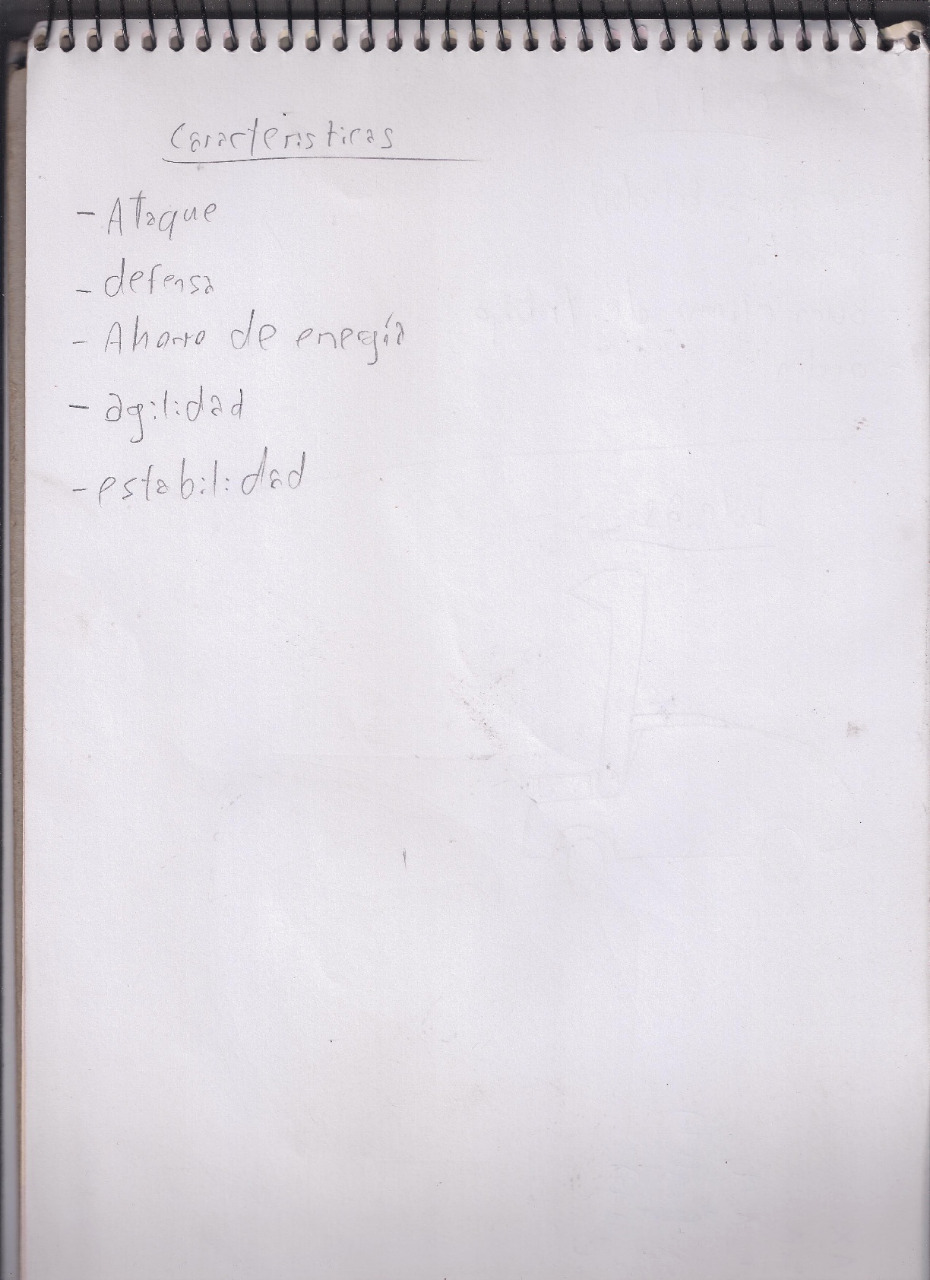 Características
- Ataque
- defensa
- Ahorro de energía
- agilidad
- estabilidad